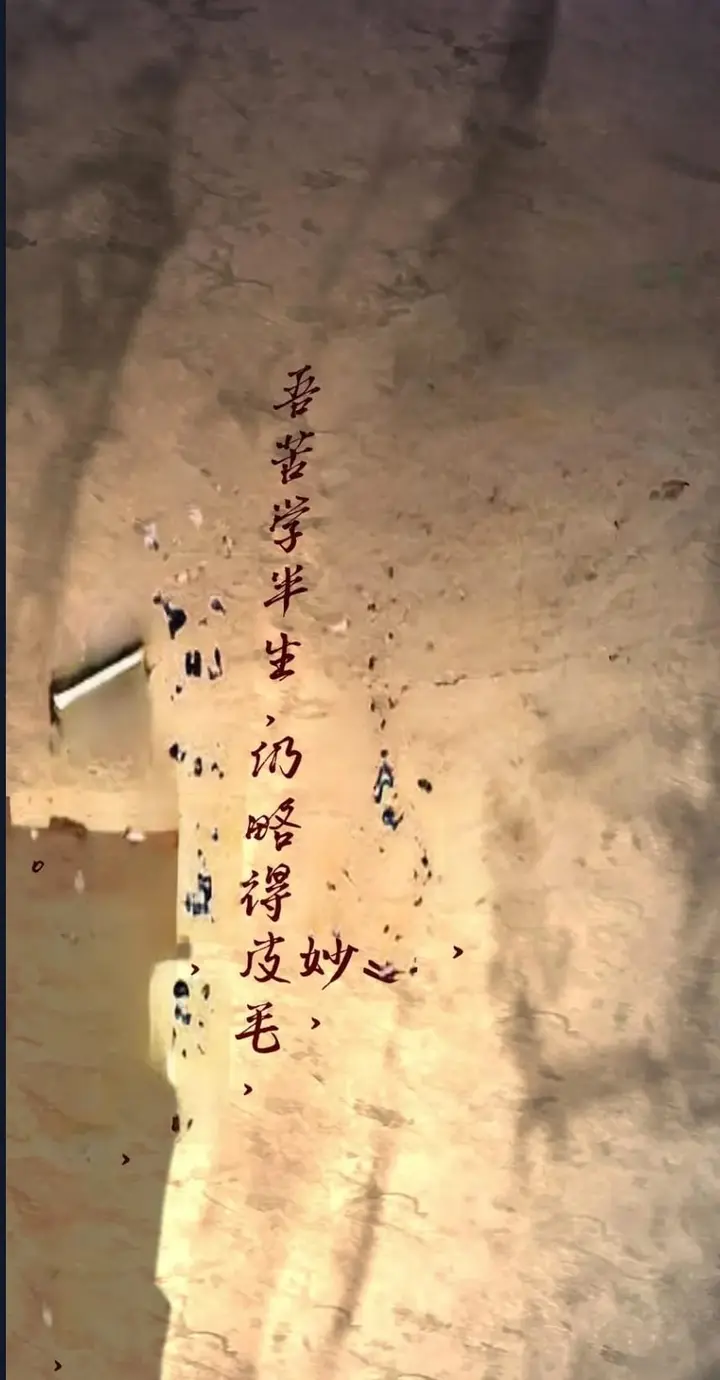 妙
吾苦学半生，仍略得皮毛，